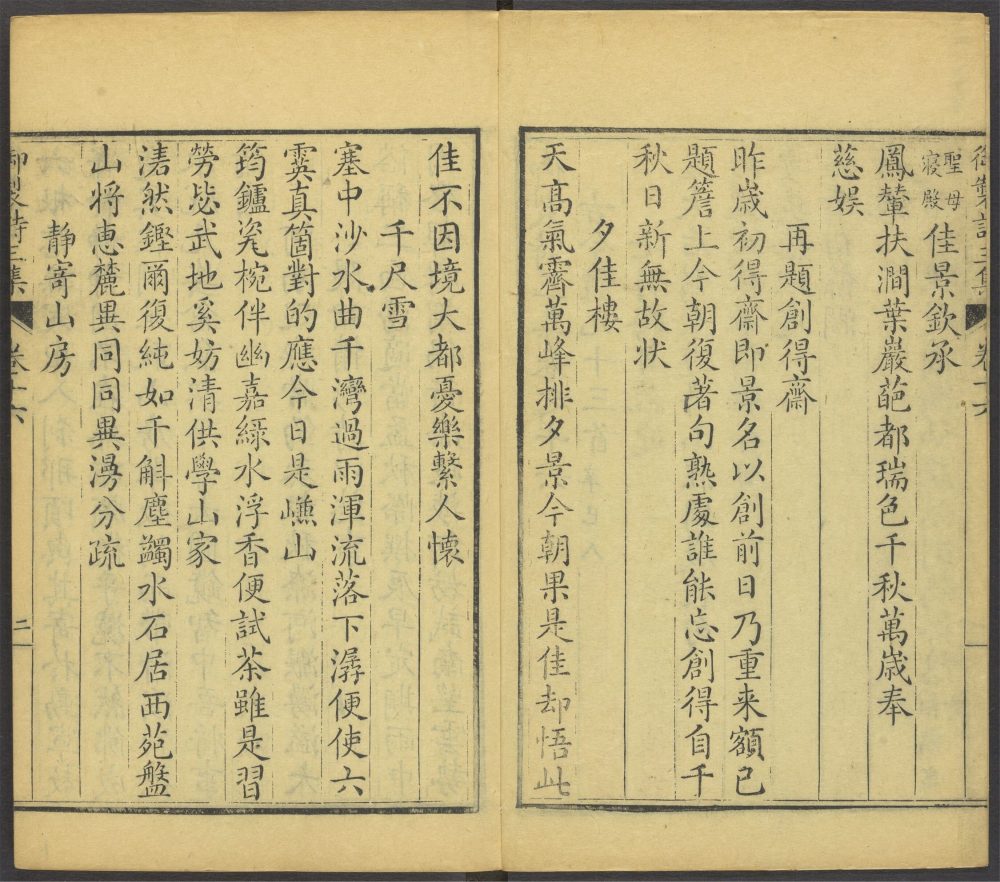 御製詩三集 卷十六
聖母
寢殿
佳景欽承
鳳輦扶澗葉巖葩都瑞色千秋萬歲奉
慈娱
再題創得齋
昨歲初得齋即景名以創前日乃重来額已
題簷上今朝復著句熟處誰能忘創得自千
秋日新無故状
夕佳樓
天高氣霽萬峰排夕景今朝果是佳却悟此
佳不因境大都憂樂繫人懷
千尺雪
塞中沙水曲千灣過雨渾流落下潺便使六
霙真箇對的應今日是㠣山
筠鑪瓷椀伴幽嘉綠水浮香便試茶雖是習
勞毖武地奚妨清供學山家
潝然鏗爾復純如千斛塵蠲水石居西苑盤
山將恵麓異同同異漫分疏
靜寄山房
御製詩三集 卷十六 二